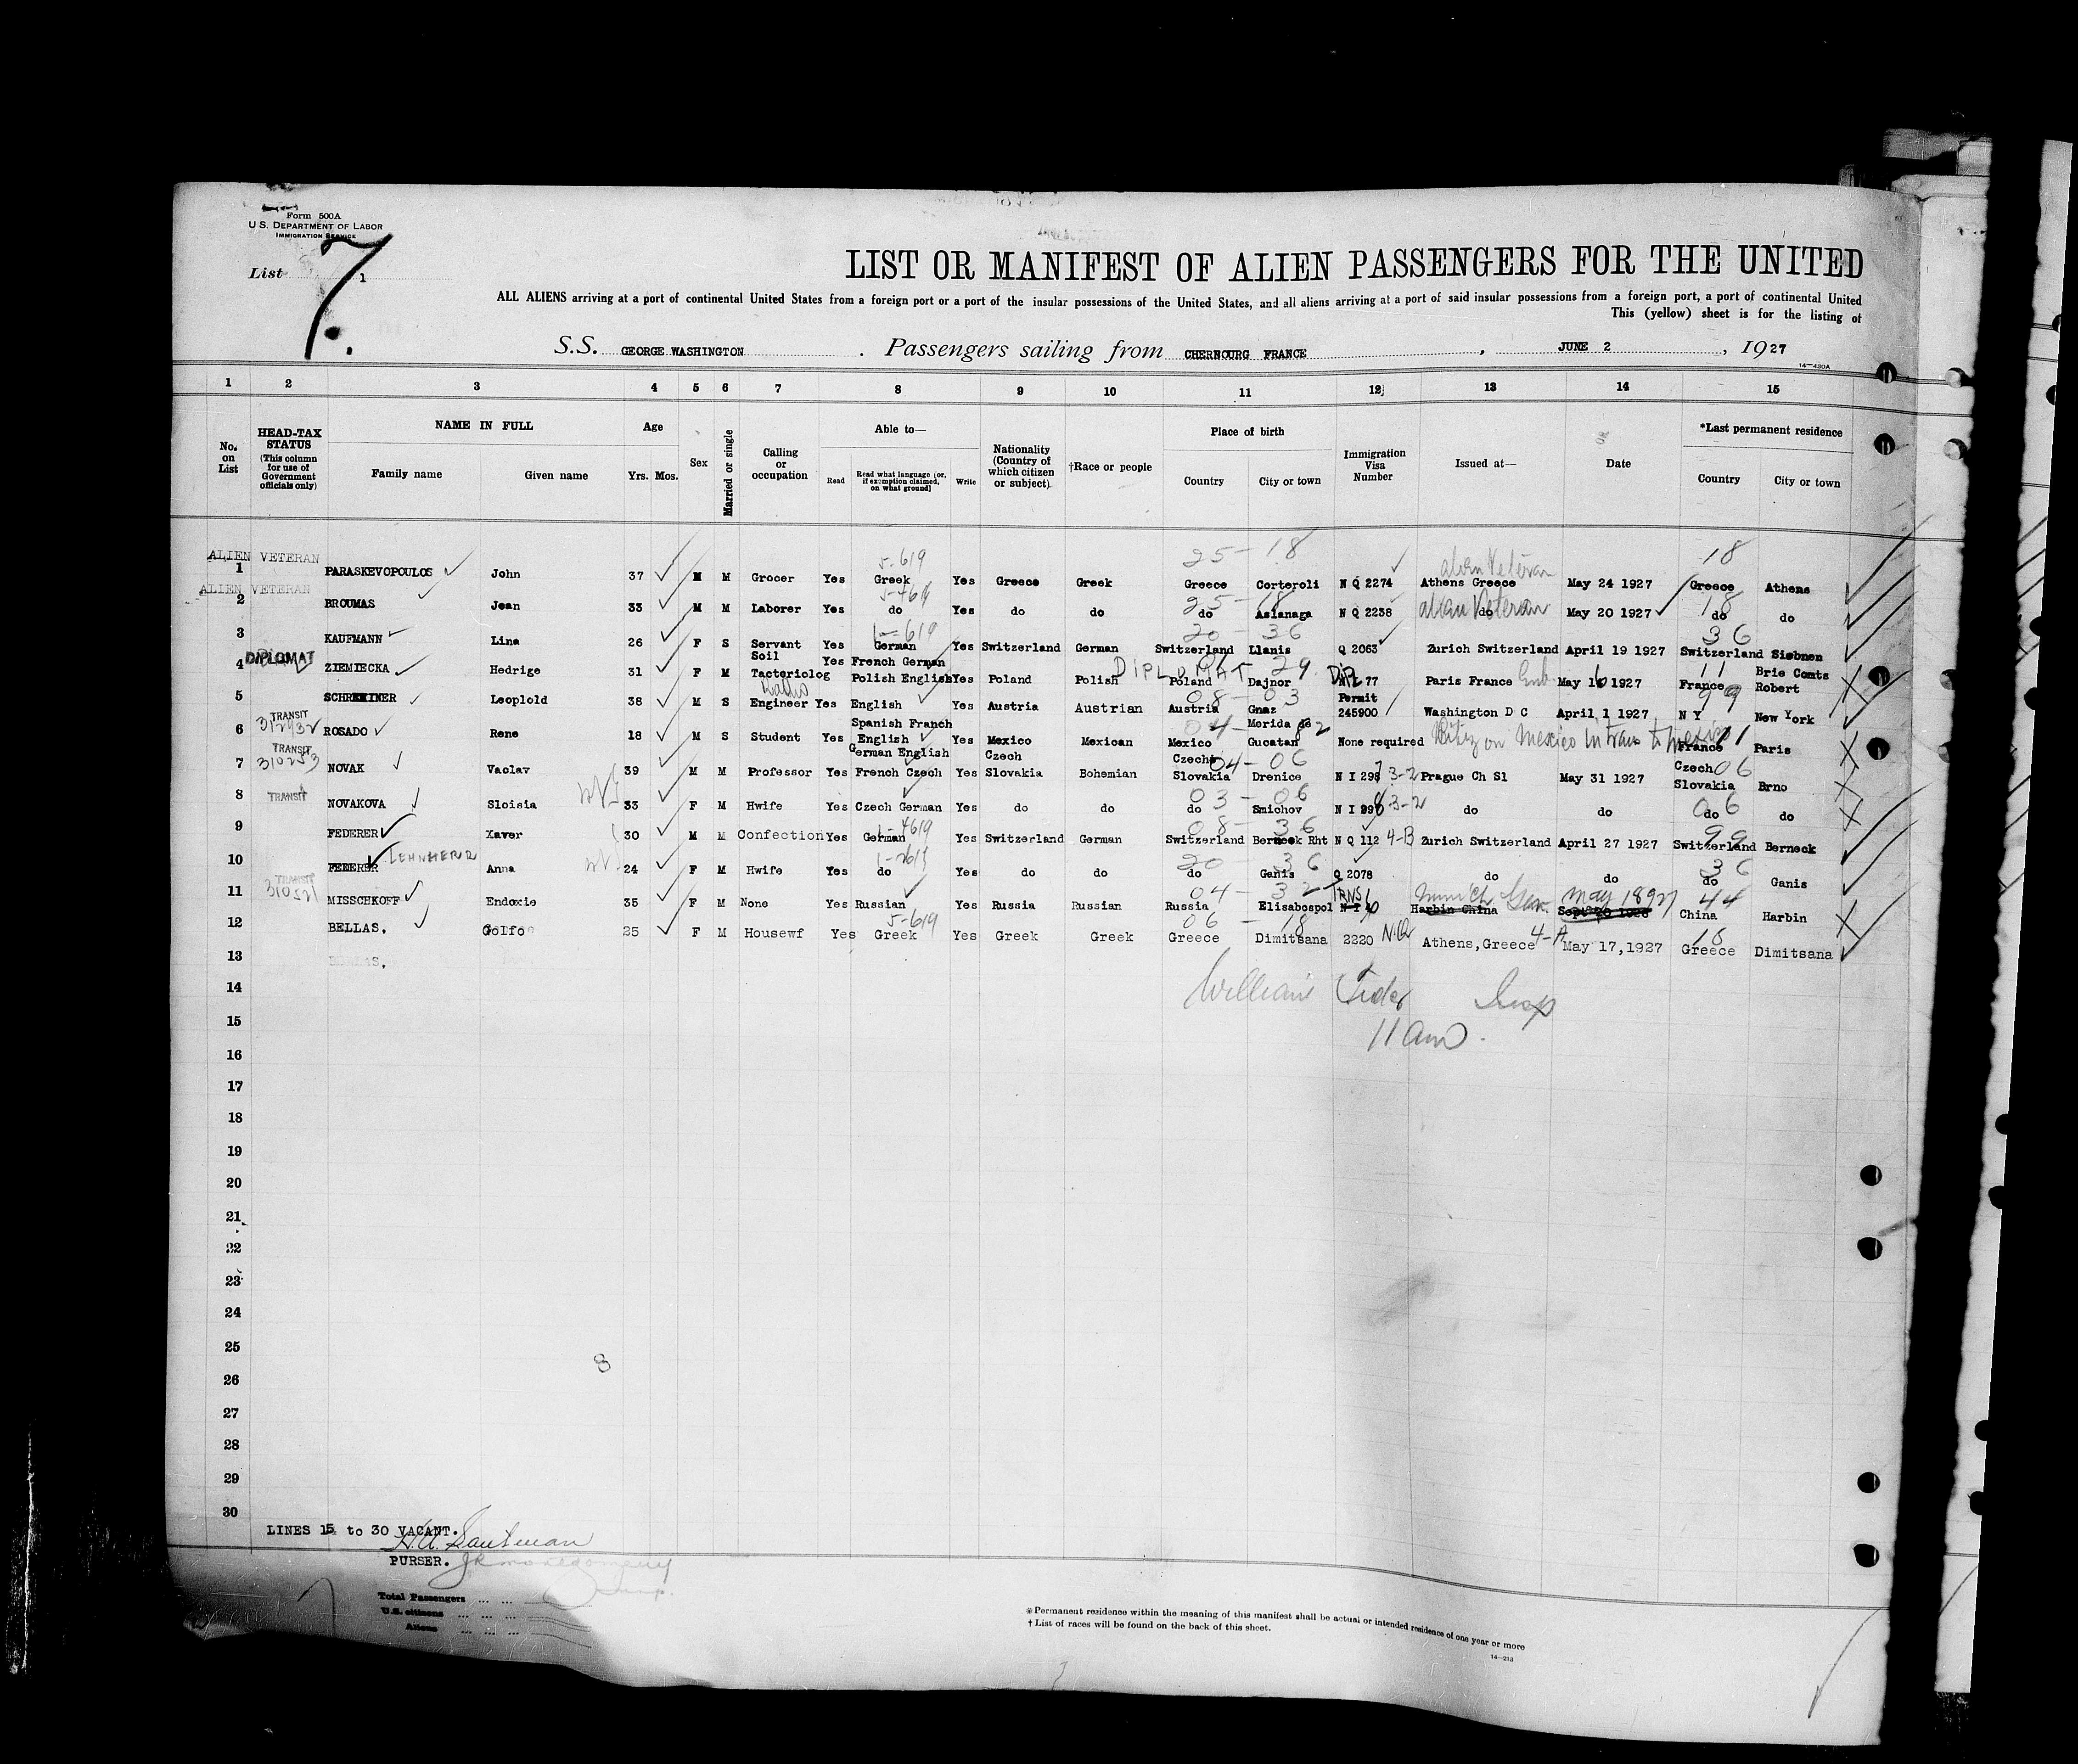 Form 500A
U. S. DEPARTMENT OF LABOR
IMMIGRATION SERVICE
List 1
7.
LIST OR MANIFEST OF ALIEN PASSENGERS FOR THE UNITED
ALL ALIENS arriving at a port of continental United States from a foreign port or a port of the insular possessions of the United States, and all aliens arriving at a port of said insular possessions from a foreign port, a port of continental United
This (yellow) sheet is for the listing of
S.S. GEORGE WASHINGTON . Passengers sailing from CHERBOURG FRANCE , JUNE 2 , 1927
14—430A
1 2 3 4 5 6 7 8 9 10 11 12 13 14 15
No. on List
HEAD-TAX STATUS (This column for use of Government officials only)
NAME IN FULL
Family name Given name
Age
Yrs. Mos.
Sex
Married or single
Calling or occupation
Able to—
Read Read what language (or, if exemption claimed, on what ground) Write
Nationality (Country of which citizen or subject)
†Race or people
Place of birth
Country City or town
Immigration Visa Number
Issued at—
Date
*Last permanent residence
Country City or town
ALIEN VETERAN 25-18 18
5-619 Alien Veteran
1 PARASKEVOPOULOS John 37 M M Grocer Yes Greek Yes Greece Greek Greece Corteroli N Q 2274 Athens Greece May 24 1927 Greece Athens
ALIEN VETERAN 25-18 Alien Veteran 18
2 BROUMAS Jean 33 M M Laborer Yes do Yes do do do Asianaga N Q 2238 do May 20 1927 do do
619 20-36 36
3 KAUFMANN Lina 26 F S Servant Yes German Yes Switzerland German Switzerland Llanis Q 2063 Zurich Switzerland April 19 1927 Switzerland Siebnen
DIPLOMAT DIPLOMAT 29 Dip 11
4 ZIEMIECKA Hedrige 31 F M Soil Tacteriolog Yes French German Polish English Yes Poland Polish Poland Dajnor 77 Paris France May 16 1927 France Brie Comts Robert
Radio 08-03 99
5 SCHREINER Leoplold 38 M S Engineer Yes English Yes Austria Austrian Austria Gnaz Permit 245900 Washington D C April 1 1927 N Y New York
TRANSIT 312932 04-
6 ROSADO Rene 18 M S Student Yes Spanish Franch English Yes Mexico Mexican Mexico Morida de Gucatan None required Citiz on Mexico in trans to Mexico France Paris
TRANSIT 310253 04-06 06
7 NOVAK Vaclav 39 M M Professor Yes German English French Czech Yes Czech Slovakia Bohemian Czecho Slovakia Drenice N I 297 3-2 Prague Ch Sl May 31 1927 Czech Slovakia Brno
TRANSIT 03-06 06
8 NOVAKOVA Sloisia 33 F M Hwife Yes Czech German Yes do do do Smichov N I 3-2 do do do do
4619 08-36 99
9 FEDERER Xaver 30 M M Confection Yes German Yes Switzerland German Switzerland Berneck Rht N Q 112 4-B Zurich Switzerland April 27 1927 Switzerland Berneck
LEHNHERR 20-36 36
10 FEDERER Anna 24 F M Hwife Yes do Yes do do do Ganis Q 2078 do do do Ganis
TRANSIT 310521 04-32 TRNS Munich Ger. May 18 927 44
11 MISSCHKOFF Endoxie 35 F M None Yes Russian Yes Russia Russian Russia Elisabospol N I Harbin China Sept 20 1926 China Harbin
5-619 06-18 18
12 BELLAS. Golfo 25 F M Housewf Yes Greek Yes Greek Greek Greece Dimitsana 2220 NQ Athens,Greece 4-A May 17,1927 Greece Dimitsana
13 BELLAS.
14 William Insp
15 11 am.
16
17
18
19
20
21
22
23
24
25
8
26
27
28
29
30
LINES 15 to 30 VACANT.
PURSER.
Total Passengers
U.S. citizens
Aliens
*Permanent residence within the meaning of this manifest shall be actual or intended residence of one year or more
† List of races will be found on the back of this sheet.
14—213